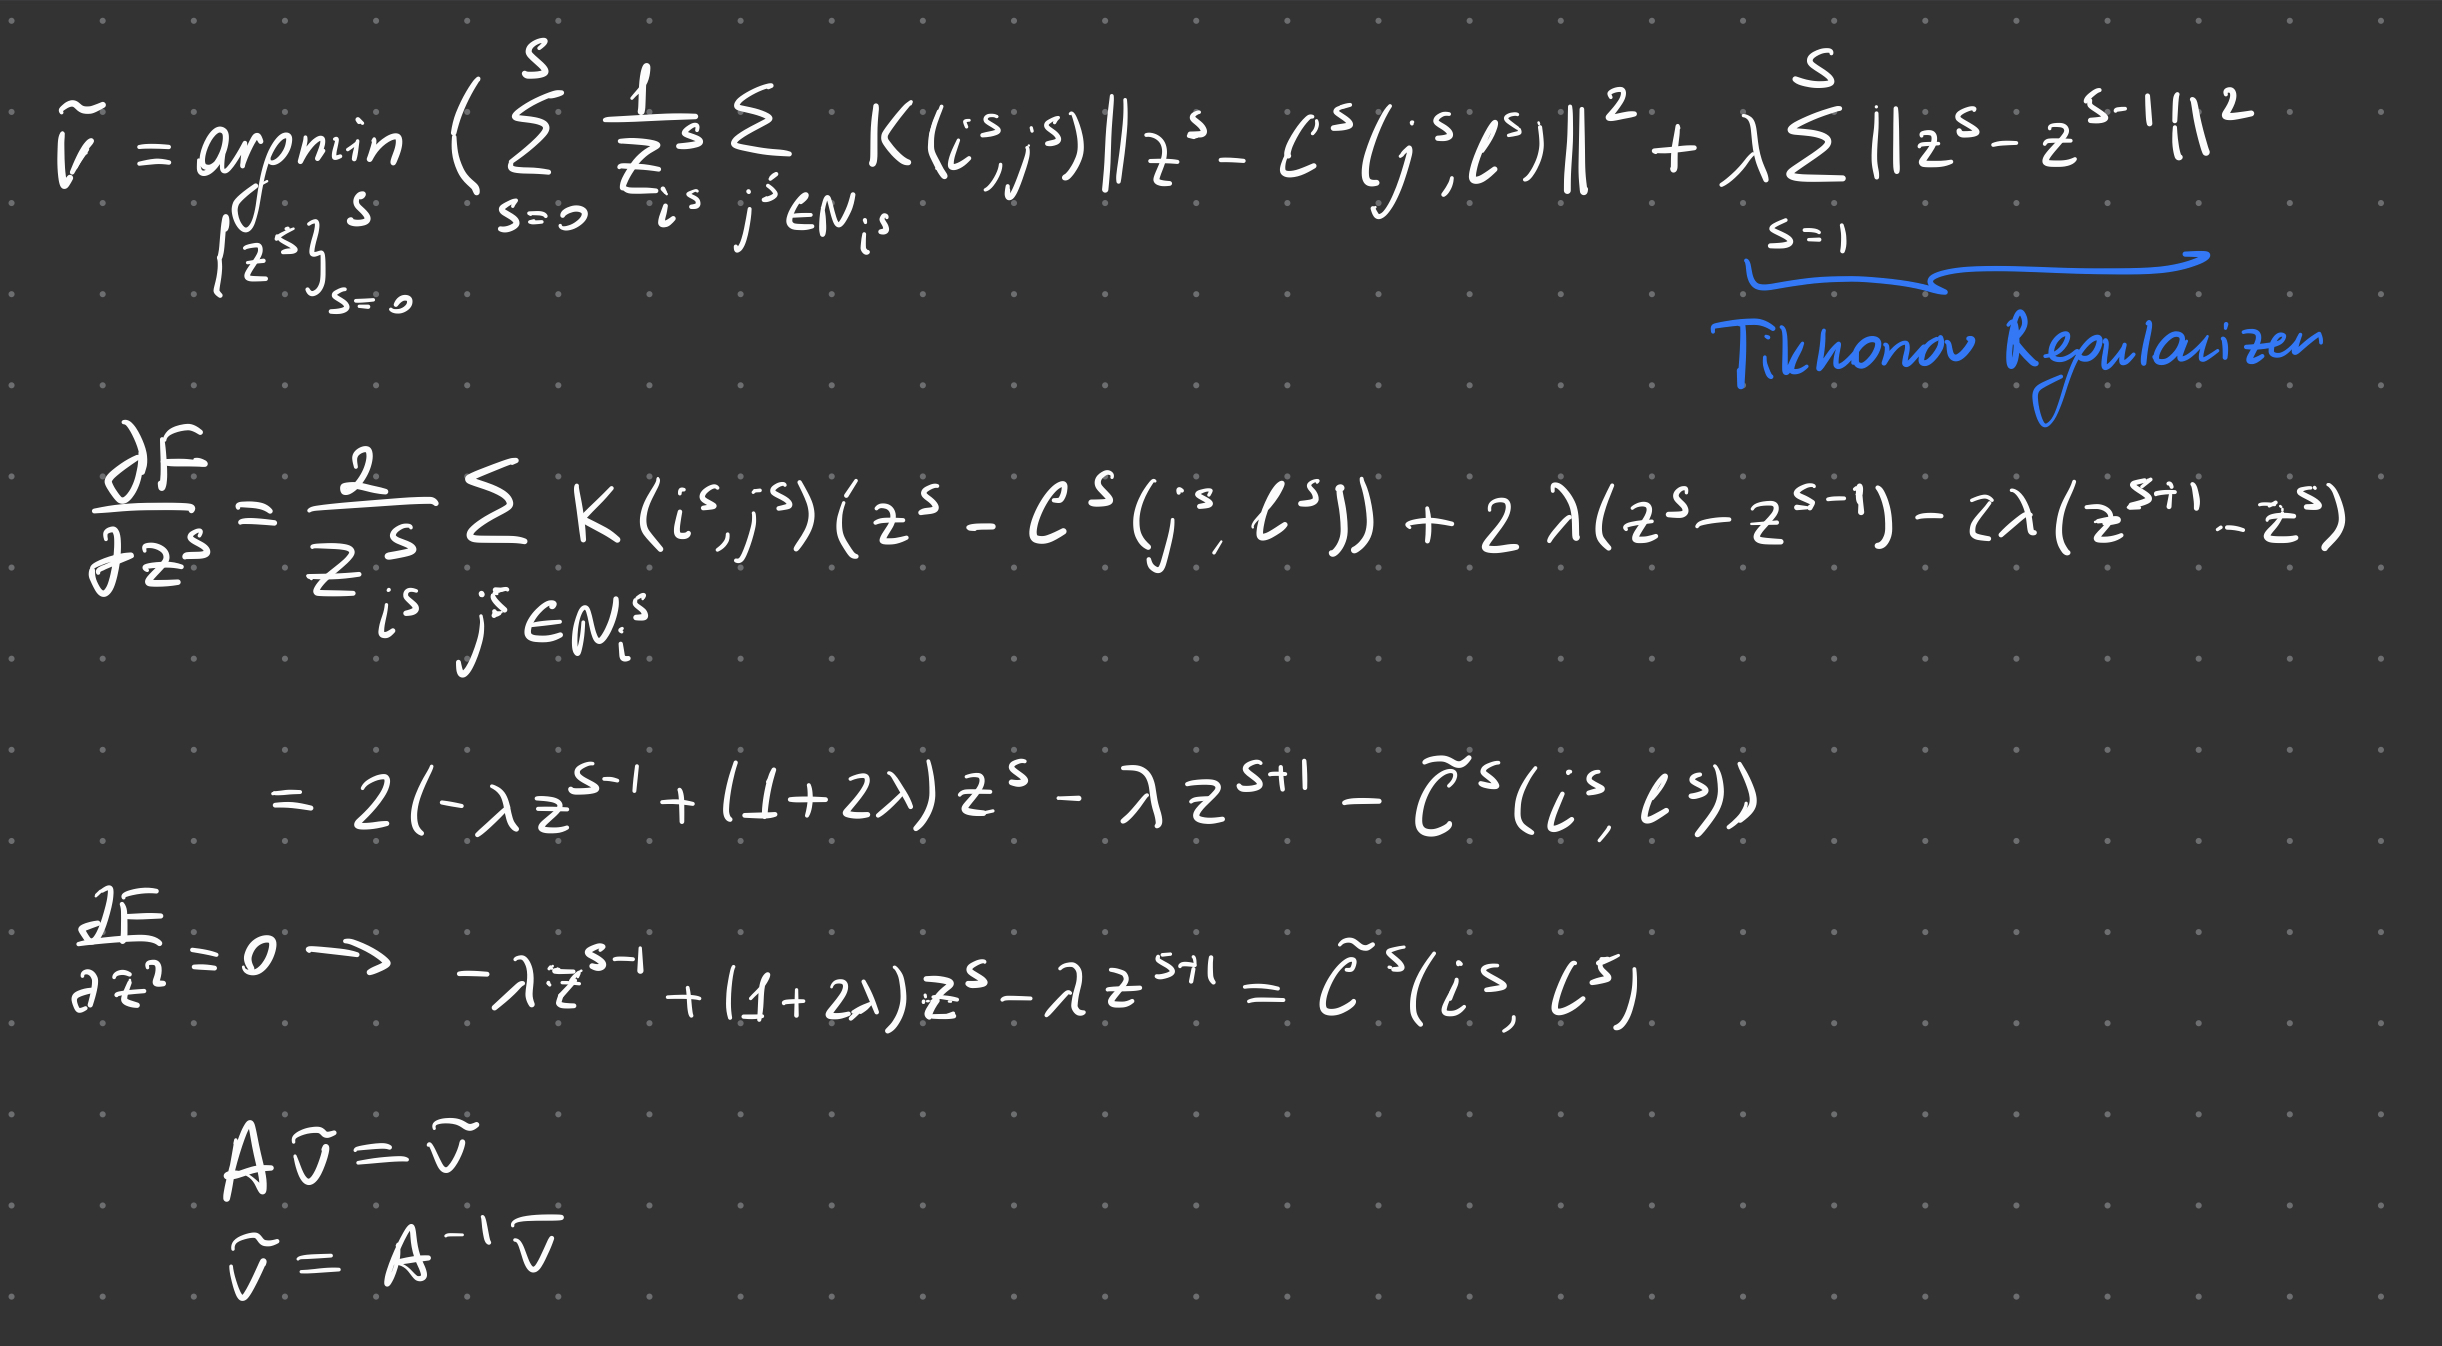 ṽ = argmin_{{z^s}_{s=0}^S} ( Σ_{s=0}^S 1/Z^s_{i^s} Σ_{j^s∈N_{i^s}} K(i^s, j^s) ‖z^s − C^s(j^s, l^s)‖² + λ Σ_{s=1}^S ‖z^s − z^{s−1}‖²
Tikhonov Regularizer
∂F/∂z^s = 2/Z^s_{i^s} Σ_{j^s∈N_i^s} K(i^s, j^s)(z^s − C^s(j^s, l^s)) + 2λ(z^s − z^{s−1}) − 2λ(z^{s+1} − z^s)
= 2(−λz^{s−1} + (1+2λ)z^s − λz^{s+1} − C̃^s(i^s, l^s))
∂F/∂z² = 0 → −λz^{s−1} + (1+2λ)z^s − λz^{s+1} = C̃^s(i^s, l^s)
Aṽ = ṽ
ṽ = A^{−1} v̄